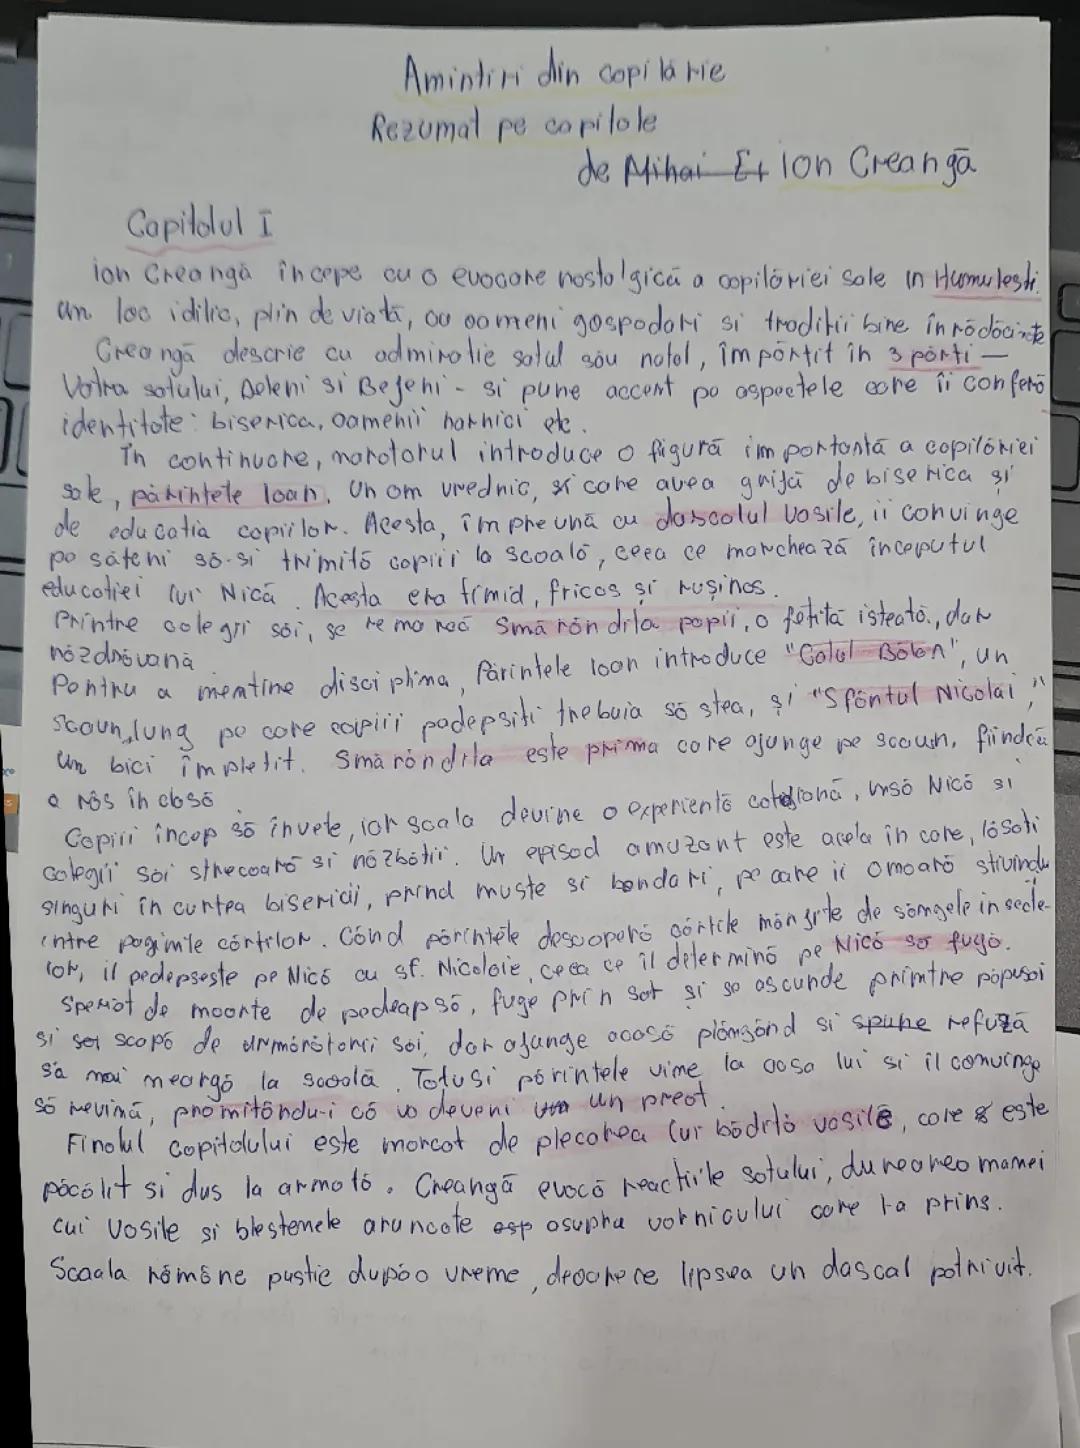 Amintiri din copilărie
Rezumat pe capitole
de Mihai E Ion Creangă
Capitolul I
Ion Creangă începe cu o evocare nostalgică a copilăriei sale în Humulesti.
un loc idilic, plin de viată, cu oameni gospodari si traditii bine înrădăcinate
Creangă descrie cu admiratie satul său natal, împărtit în 3 părti —
Vatra satului, Deleni si Bejeni - si pune accent pe aspectele care îi conferă
identitate: biserica, oamenii harnici etc.
În continuare, naratorul introduce o figură importantă a copilăriei
sale, părintele Ioan. Un om vrednic, care avea grijă de biserica și
de educatia copiilor. Acesta, împreună cu dascalul Vasile, ii convinge
pe săteni să-si trimită copiii la scoală, ceea ce marchează începutul
educatiei lui Nică. Acesta era timid, fricos și rușinos.
Printre colegii săi, se remarcă Smărăndita popii, o fetită isteată, dar
năzdrăvană
Pentru a mentine disciplina, Părintele Ioan introduce "Calul Bălan", un
scaun lung pe care copiii pedepsiti trebuia să stea, și "Sfântul Nicolai",
un bici împletit. Smărăndita este prima care ajunge pe scaun, fiindcă
a râs în clasă
Copiii încep să învete, iar scoala devine o experientă cotidiană, însă Nică si
colegii săi strecoară si năzbâtii. Un episod amuzant este acela în care, lăsati
singuri în curtea bisericii, prind muste si bondari, pe care ii omoară stivindu
intre paginile cărtilor. Când părintele descoperă cărtile mânjite de sângele insecte-
lor, il pedepseste pe Nică cu sf. Nicolaie, ceea ce îl determină pe Nică să fugă.
Speriat de moarte de pedeapsă, fuge prin sat și se ascunde printre păpusoi
si scapă de urmăritorii săi, dar ajunge acasă plângând si spune refuză
să mai meargă la scoală. Totusi părintele vine la casa lui si îl convinge
să revină, promitându-i că va deveni un preot.
Finalul capitolului este marcat de plecarea lui bădită vasile, care este
păcălit si dus la armată. Creangă evocă reactiile satului, durearea mamei
lui Vasile și blestemele aruncate asupra vornicului care l-a prins.
Scoala rămâne pustie după o vreme, deoarece lipsea un dascal potrivit.